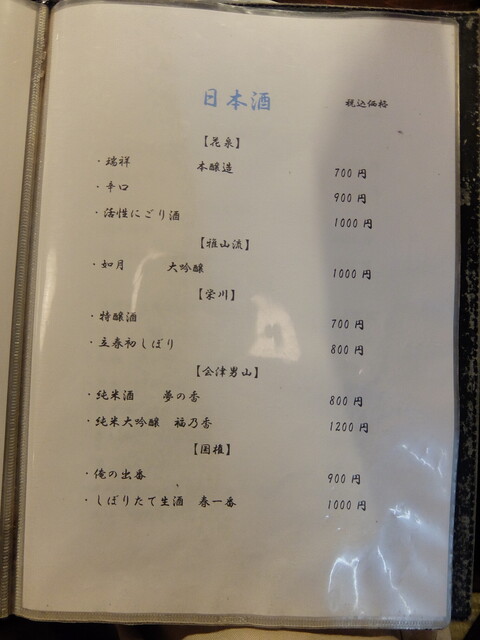 日本酒 税込価格
【花泉】
・瑞祥 本醸造 700円
・辛口 900円
・活性にごり酒 1000円
【雅山流】
・如月 大吟醸 1000円
【栄川】
・特醸酒 700円
・立春初しぼり 800円
【会津男山】
・純米酒 夢の香 800円
・純米大吟醸 福乃香 1200円
【国権】
・俺の出番 900円
・しぼりたて生酒 春一番 1000円